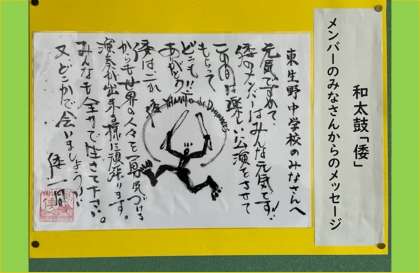 和太鼓「倭」
メンバーのみなさんからのメッセージ
東生野中学校のみなさんへ
元気ですか？
倭のメンバーはみんな元気です!!
この間は楽しい公演をさせて
もらって
どうも!!
ありがとう
倭はこれ
からも世界の人々を勇気づける
演奏が出来る様に頑張ります。
みんなも全力で生きて下さい。
又どこかで会いましょう!!
倭一同
倭 Yamato-de Drummers